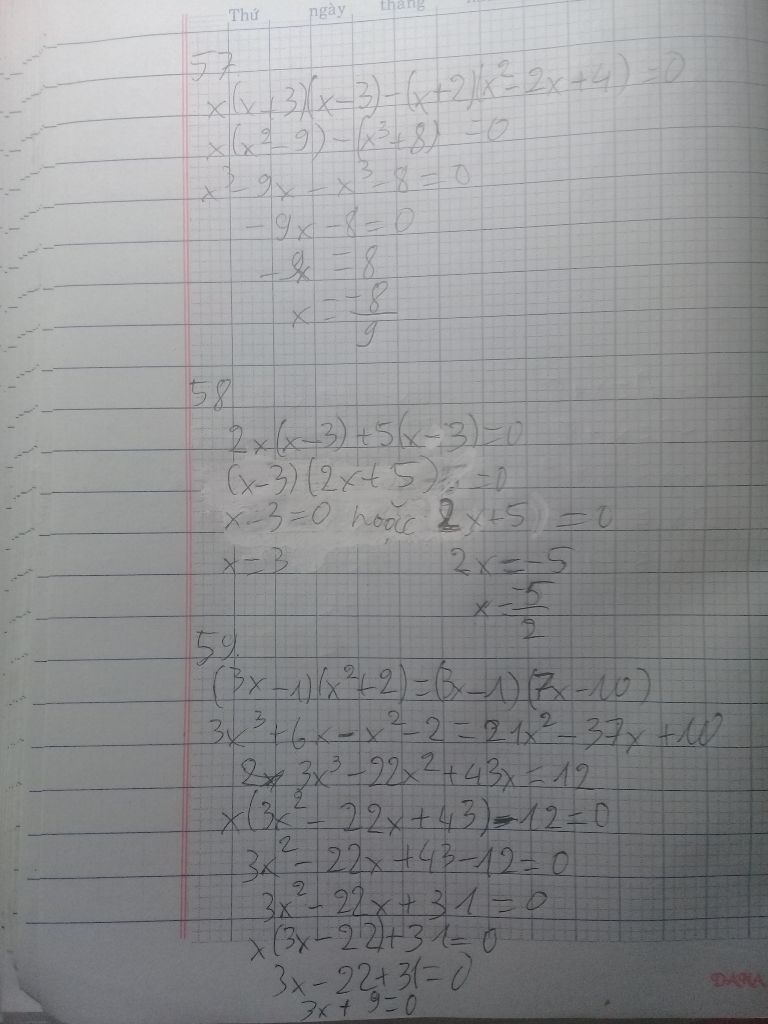 Thứ ngày tháng
57.
x(x+3)(x-3)-(x+2)(x²-2x+4)=0
x(x²-9)-(x³+8)=0
x³-9x-x³-8=0
-9x-8=0
-9x=8
x=-8/9
58
2x(x-3)+5(x-3)=0
(x-3)(2x+5)=0
x-3=0 hoặc 2x+5=0
x=3 2x=-5
x=-5/2
59.
(3x-1)(x²+2)=(3x-1)(7x-10)
3x³+6x-x²-2=21x²-37x+10
3x³-22x²+43x=12
x(3x²-22x+43)-12=0
3x²-22x+43-12=0
3x²-22x+31=0
x(3x-22)+31=0
3x-22+31=0
3x+9=0